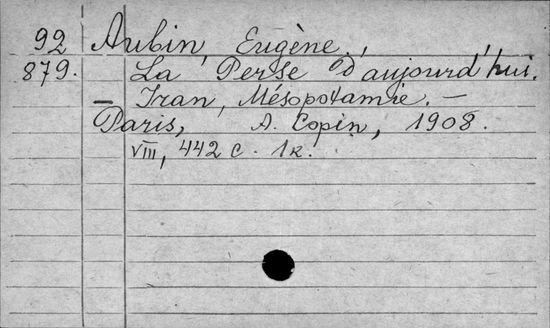 92 Aubin, Eugène.,
879. La Perse d'aujourd'hui.
– Iran, Mésopotamie. –
Paris, A. Copin, 1908.
VIII, 442 c. 1к.